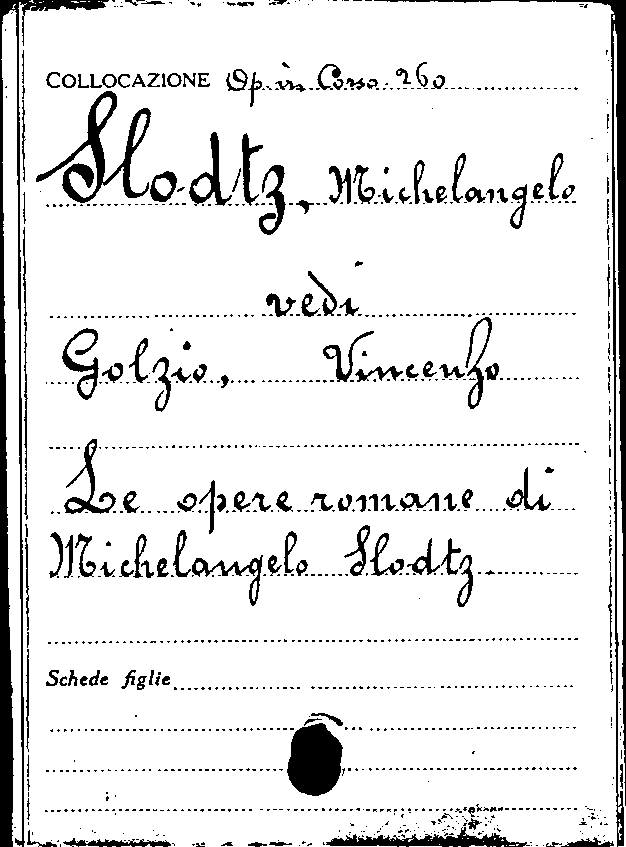 COLLOCAZIONE Op. in Corso. 260
Slodtz, Michelangelo
vedi
Golzio, Vincenzo
Le opere romane di
Michelangelo Slodtz.
Schede figlie